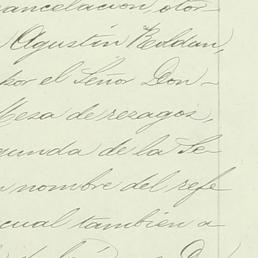 cancelacion otor-
Agustín Roldan,
por el Señor Don
Mesa de rezagos,
gunda de la Se-
nombre del refe
cual tambien a